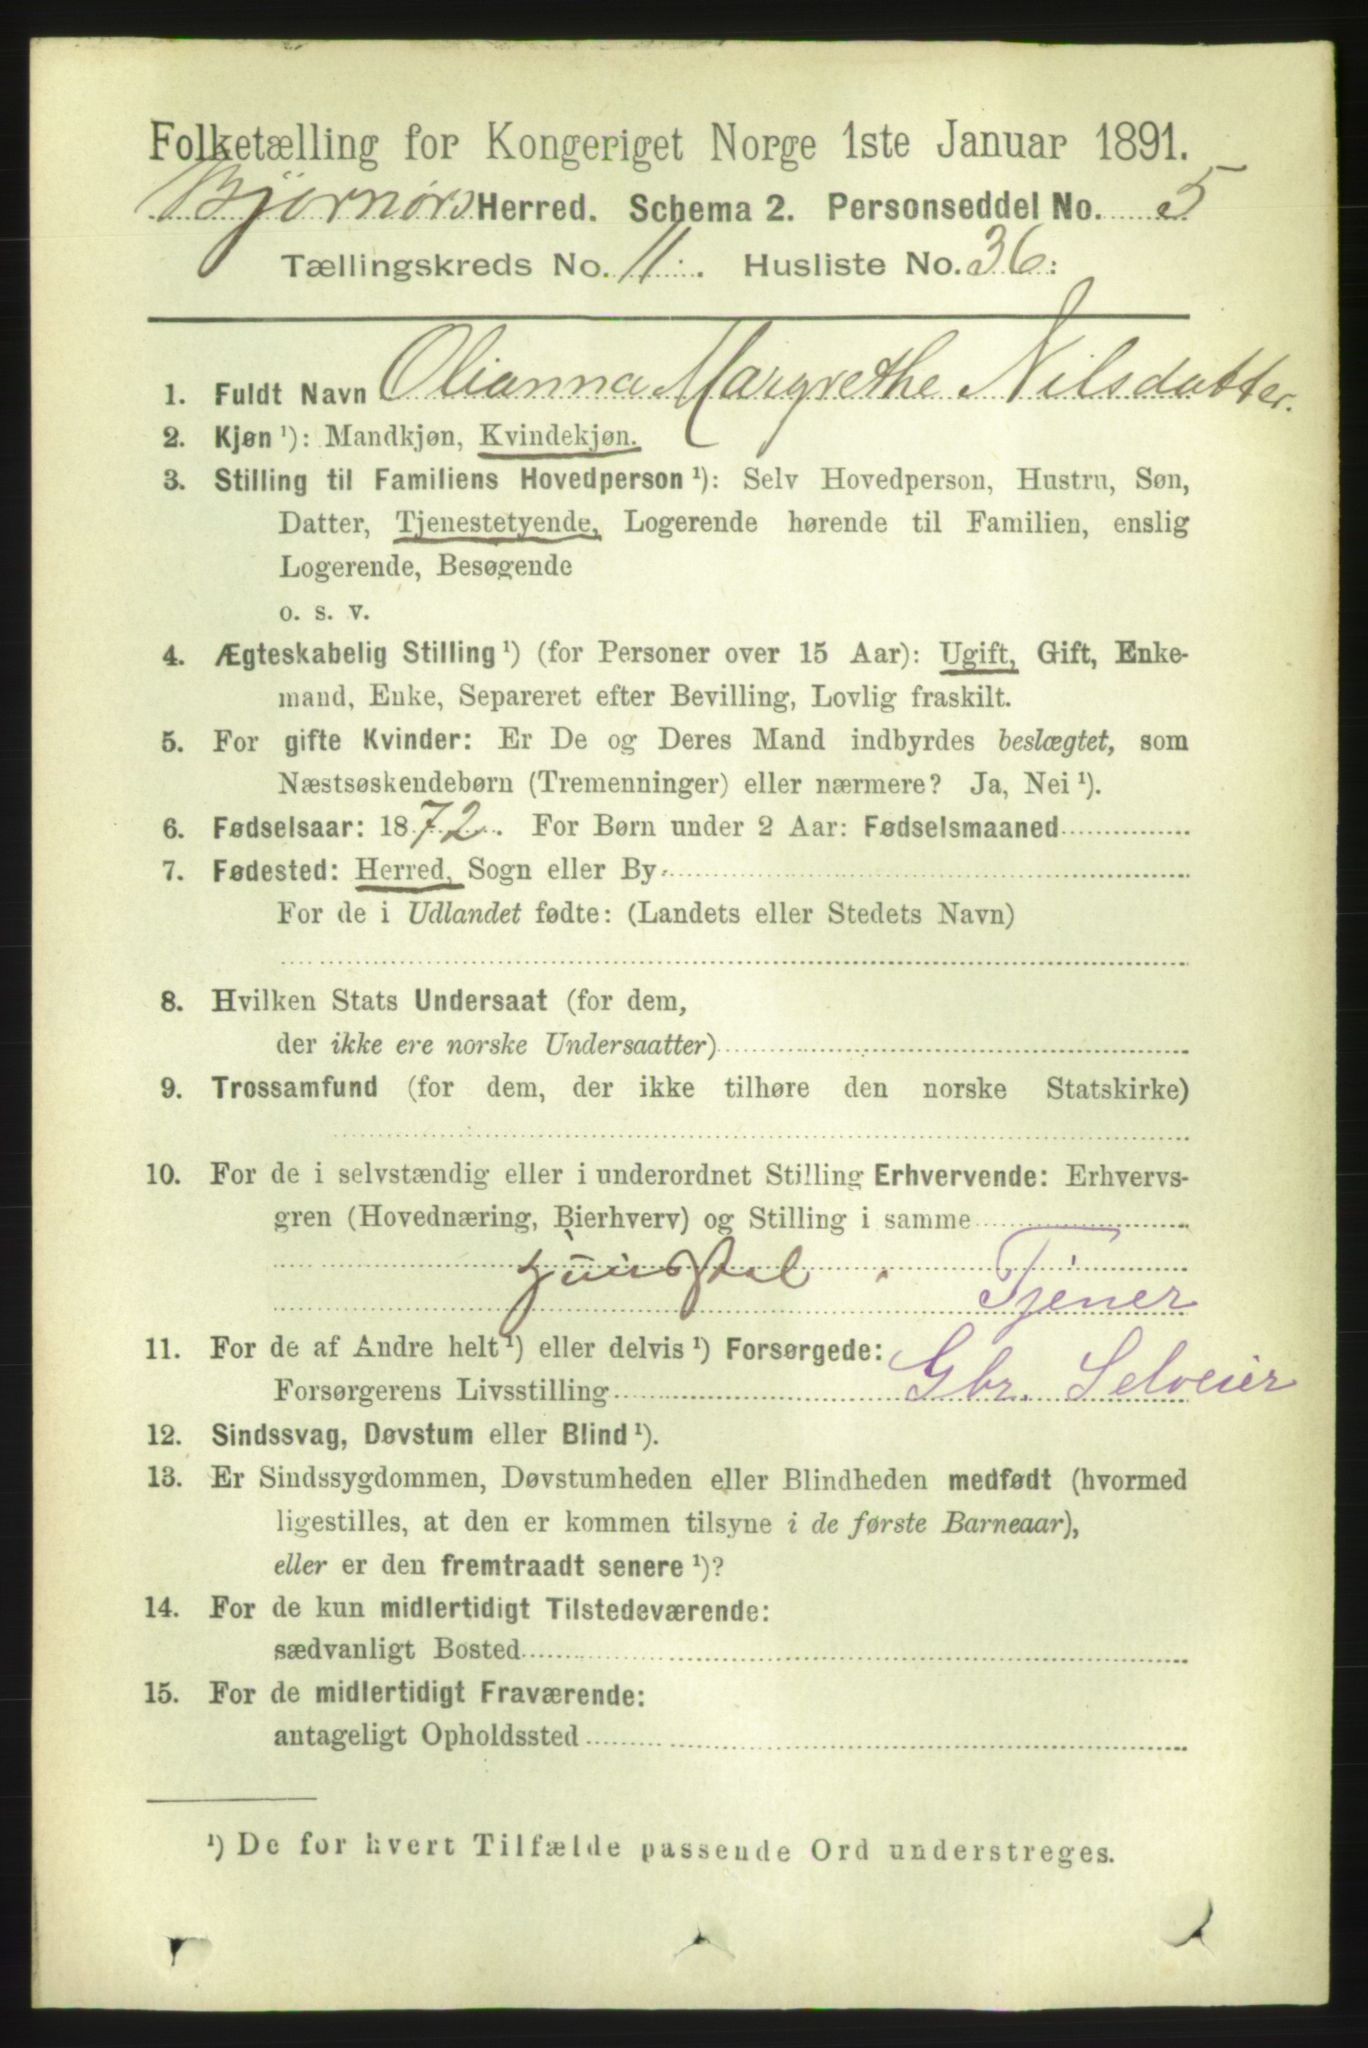 Folketælling for Kongeriget Norge 1ste Januar 1891.
Bjørnørs Herred. Schema 2. Personseddel No. 5
Tællingskreds No. 11. Husliste No. 36.
1. Fuldt Navn Olianna Margrethe Nilsdatter.
2. Kjøn ¹): Mandkjøn, Kvindekjøn.
3. Stilling til Familiens Hovedperson ¹): Selv Hovedperson, Hustru, Søn,
Datter, Tjenestetyende, Logerende hørende til Familien, enslig
Logerende, Besøgende
o. s. v.
4. Ægteskabelig Stilling ¹) (for Personer over 15 Aar): Ugift, Gift, Enke-
mand, Enke, Separeret efter Bevilling, Lovlig fraskilt.
5. For gifte Kvinder: Er De og Deres Mand indbyrdes beslægtet, som
Næstsøskendebørn (Tremenninger) eller nærmere? Ja, Nei ¹).
6. Fødselsaar: 1872. For Børn under 2 Aar: Fødselsmaaned
7. Fødested: Herred, Sogn eller By
For de i Udlandet fødte: (Landets eller Stedets Navn)
8. Hvilken Stats Undersaat (for dem,
der ikke ere norske Undersaatter)
9. Trossamfund (for dem, der ikke tilhøre den norske Statskirke)
10. For de i selvstændig eller i underordnet Stilling Erhvervende: Erhvervs-
gren (Hovednæring, Bierhverv) og Stilling i samme
Tjener
11. For de af Andre helt ¹) eller delvis ¹) Forsørgede:
Forsørgerens Livsstilling Gbr. Selveier
12. Sindssvag, Døvstum eller Blind ¹).
13. Er Sindssygdommen, Døvstumheden eller Blindheden medfødt (hvormed
ligestilles, at den er kommen tilsyne i de første Barneaar),
eller er den fremtraadt senere ¹)?
14. For de kun midlertidigt Tilstedeværende:
sædvanligt Bosted
15. For de midlertidigt Fraværende:
antageligt Opholdssted
¹) De for hvert Tilfælde passende Ord understreges.